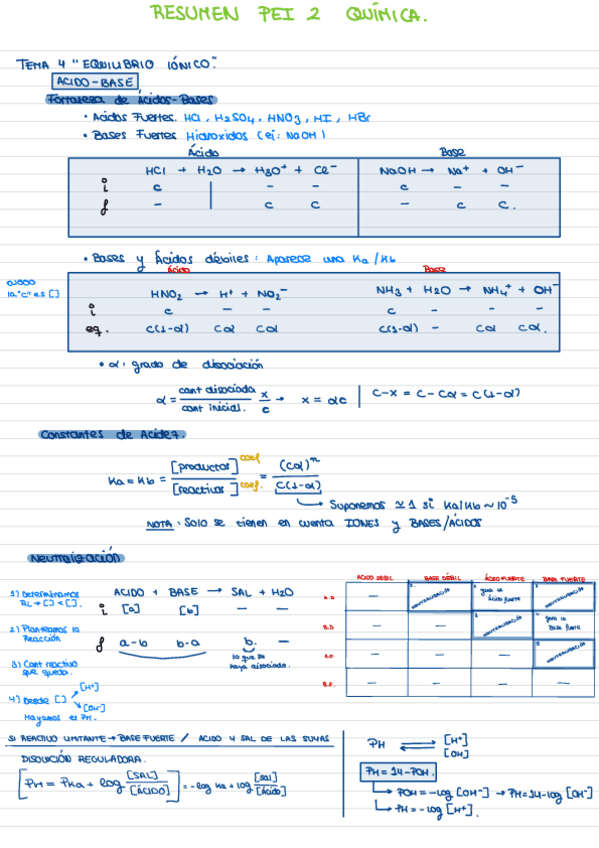 RESUMEN PEI 2 QUÍMICA.
TEMA 4 "EQUILIBRIO IÓNICO".
ACIDO-BASE
Fortaleza de Ácidos-Bases
• Acidos Fuertes. HCl, H2SO4, HNO3, HI, HBr
• Bases Fuertes Hidroxidos (ej: NaOH)
Ácido Base
HCl + H2O → H3O⁺ + Cl⁻ NaOH → Na⁺ + OH⁻
i c | - - c - -
f - | c c - c c.
• Bases y Ácidos débiles: Aparece una Ka/Kb
Ácido Base
la "c" es []
HNO2 → H⁺ + NO2⁻ NH3 + H2O → NH4⁺ + OH⁻
i c - - c - - -
eq. c(1-α) cα cα c(1-α) - cα cα.
• α: grado de disociación
α = cant disociada / cant inicial. x/c → x = αc | c-x = c-cα = c(1-α)
Constantes de Acidez.
Ka = Kb = [productos]^coef / [reactivos]^coef. = (cα)ⁿ / c(1-α)
Suponemos ≃ 1 si Ka/Kb ~ 10⁻⁵
NOTA: Solo se tienen en cuenta IONES y BASES/ÁCIDOS
Neutralización
1) Determinamos RL → [] < [].
ACIDO + BASE → SAL + H2O
i [a] [b] - -
2) Planteamos la Reacción
f a-b b-a b. -
lo que se haya disociado.
3) Cant reactivo que queda.
4) Desde [] [H⁺] [OH⁻]
Hayamos el PH.
ACIDO DEBIL BASE DÉBIL ÁCIDO FUERTE BASE FUERTE
A.D - NEUTRALIZACIÓN gana el ácido fuerte NEUTRALIZACIÓN
B.D - - NEUTRALIZACIÓN gana la base fuerte
A.F. - - - NEUTRALIZACIÓN
B.F. - - - -
SI REACTIVO LIMITANTE → BASE FUERTE / ACIDO Y SAL DE LAS SUYAS
DISOLUCIÓN REGULADORA.
PH = PKa + log [SAL]/[ÁCIDO] = -log Ka + log [sal]/[Ácido]
PH ⇌ [H⁺] [OH]
PH = 14-POH.
POH = -log [OH⁻] → PH = 14-log [OH⁻]
PH = -log [H⁺].